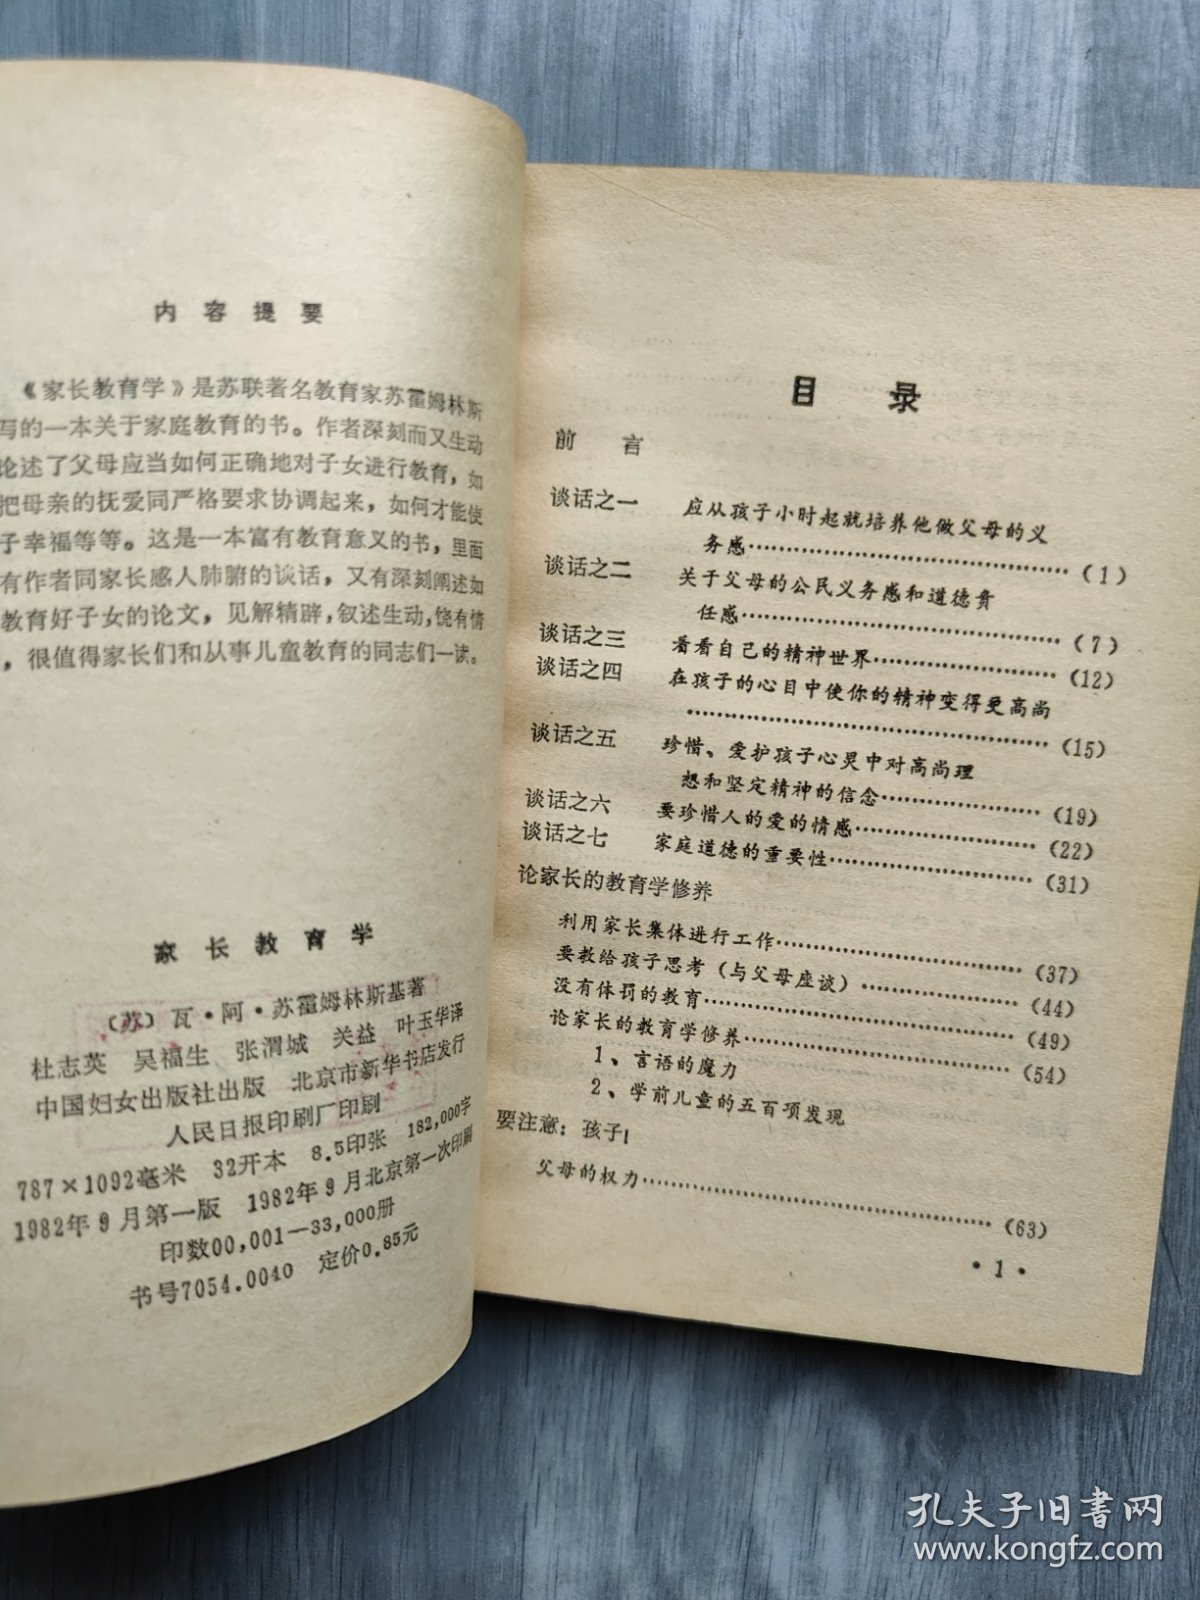 内容提要
《家长教育学》是苏联著名教育家苏霍姆林斯
写的一本关于家庭教育的书。作者深刻而又生动
论述了父母应当如何正确地对子女进行教育，如
把母亲的抚爱同严格要求协调起来，如何才能使
子幸福等等。这是一本富有教育意义的书，里面
有作者同家长感人肺腑的谈话，又有深刻阐述如
教育好子女的论文，见解精辟，叙述生动，饶有情
，很值得家长们和从事儿童教育的同志们一读。
家长教育学
〔苏〕瓦·阿·苏霍姆林斯基著
杜志英 吴福生 张渭城 关益 叶玉华译
中国妇女出版社出版 北京市新华书店发行
人民日报印刷厂印刷
787×1092毫米 32开本 8.5印张 182,000字
1982年9月第一版 1982年9月北京第一次印刷
印数00,001—33,000册
书号7054.0040 定价0.85元
目录
前言
谈话之一 应从孩子小时起就培养他做父母的义
务感……………………………（1）
谈话之二 关于父母的公民义务感和道德责
任感……………………………（7）
谈话之三 看看自己的精神世界………………（12）
谈话之四 在孩子的心目中使你的精神变得更高尚
………………………………（15）
谈话之五 珍惜、爱护孩子心灵中对高尚理
想和坚定精神的信念………………（19）
谈话之六 要珍惜人的爱的情感………………（22）
谈话之七 家庭道德的重要性…………………（31）
论家长的教育学修养
利用家长集体进行工作……………………（37）
要教给孩子思考（与父母座谈）……………（44）
没有体罚的教育……………………………（49）
论家长的教育学修养………………………（54）
1、言语的魔力
2、学前儿童的五百项发现
要注意：孩子！
父母的权力…………………………………（63）
·1·
孔夫子旧书网
www.kongfz.com